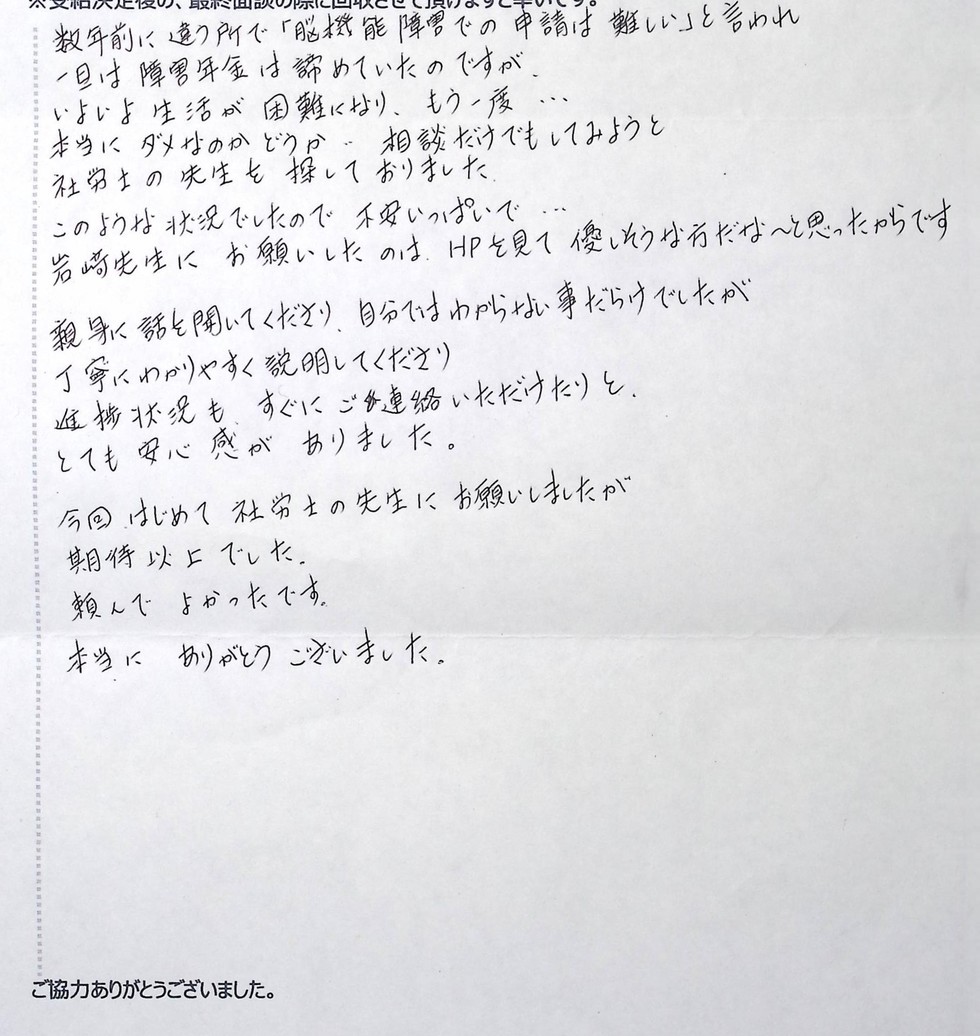 ※受給決定後の、最終面談の際に回収させて頂けますと幸いです。
数年前に違う所で「脳機能障害での申請は難しい」と言われ
一旦は障害年金は諦めていたのですが、
いよいよ生活が困難になり、もう一度…
本当にダメなのかどうか‥相談だけでもしてみようと
社労士の先生を探しておりました。
このような状況でしたので不安いっぱいで…
岩崎先生にお願いしたのは、HPを見て優しそうな方だな〜と思ったからです
親身に話を聞いてくださり、自分ではわからない事だらけでしたが
丁寧にわかりやすく説明してくださり
進捗状況も、すぐにご連絡いただけたりと、
とても安心感がありました。
今回、はじめて社労士の先生にお願いしましたが
期待以上でした。
頼んでよかったです。
本当にありがとうございました。
ご協力ありがとうございました。